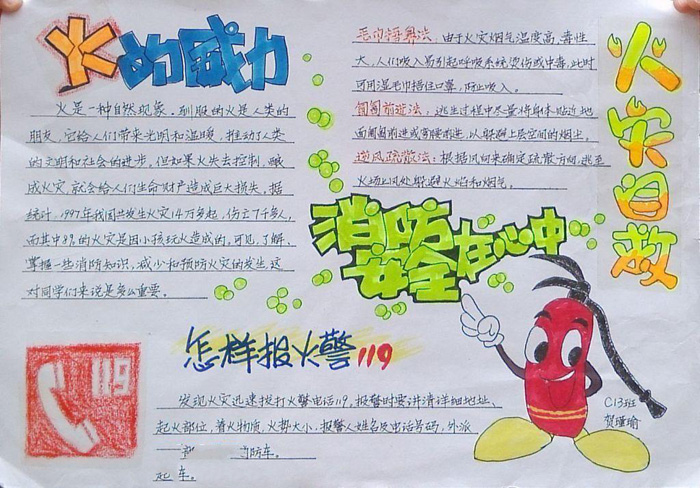 火的威力
火是一种自然现象，驯服的火是人类的
朋友，它给人们带来光明和温暖，推动了人类
的文明和社会的进步。但如果火失去控制，酿
成火灾，就会给人们生命财产造成巨大损失。据
统计，1997年我国共发生火灾14万多起，伤亡7千多人，
而其中8%的火灾是因小孩玩火造成的，可见，了解、
掌握一些消防知识，减少和预防火灾的发生，这
对同学们来说是多么重要。
毛巾捂鼻法，由于火灾烟气温度高、毒性
大，人们吸入易引起呼吸系统烫伤或中毒，此时
可用湿毛巾捂住口鼻，防止吸入。
匍匐前进法：逃生过程中尽量将身体贴近地
面匍匐前进或弯腰前进，以躲避上层空间的烟尘。
逆风疏散法：根据风向来确定疏散方向，逃至
火场上风处躲避火焰和烟气。
火灾自救
消防
安全在心中
怎样报火警119
发现火灾迅速拨打火警电话119，报警时要讲清详细地址、
起火部位，着火物质，火势大小，报警人姓名及电话号码，外派
防车。
车。
119
C13班
贺瑾瑜